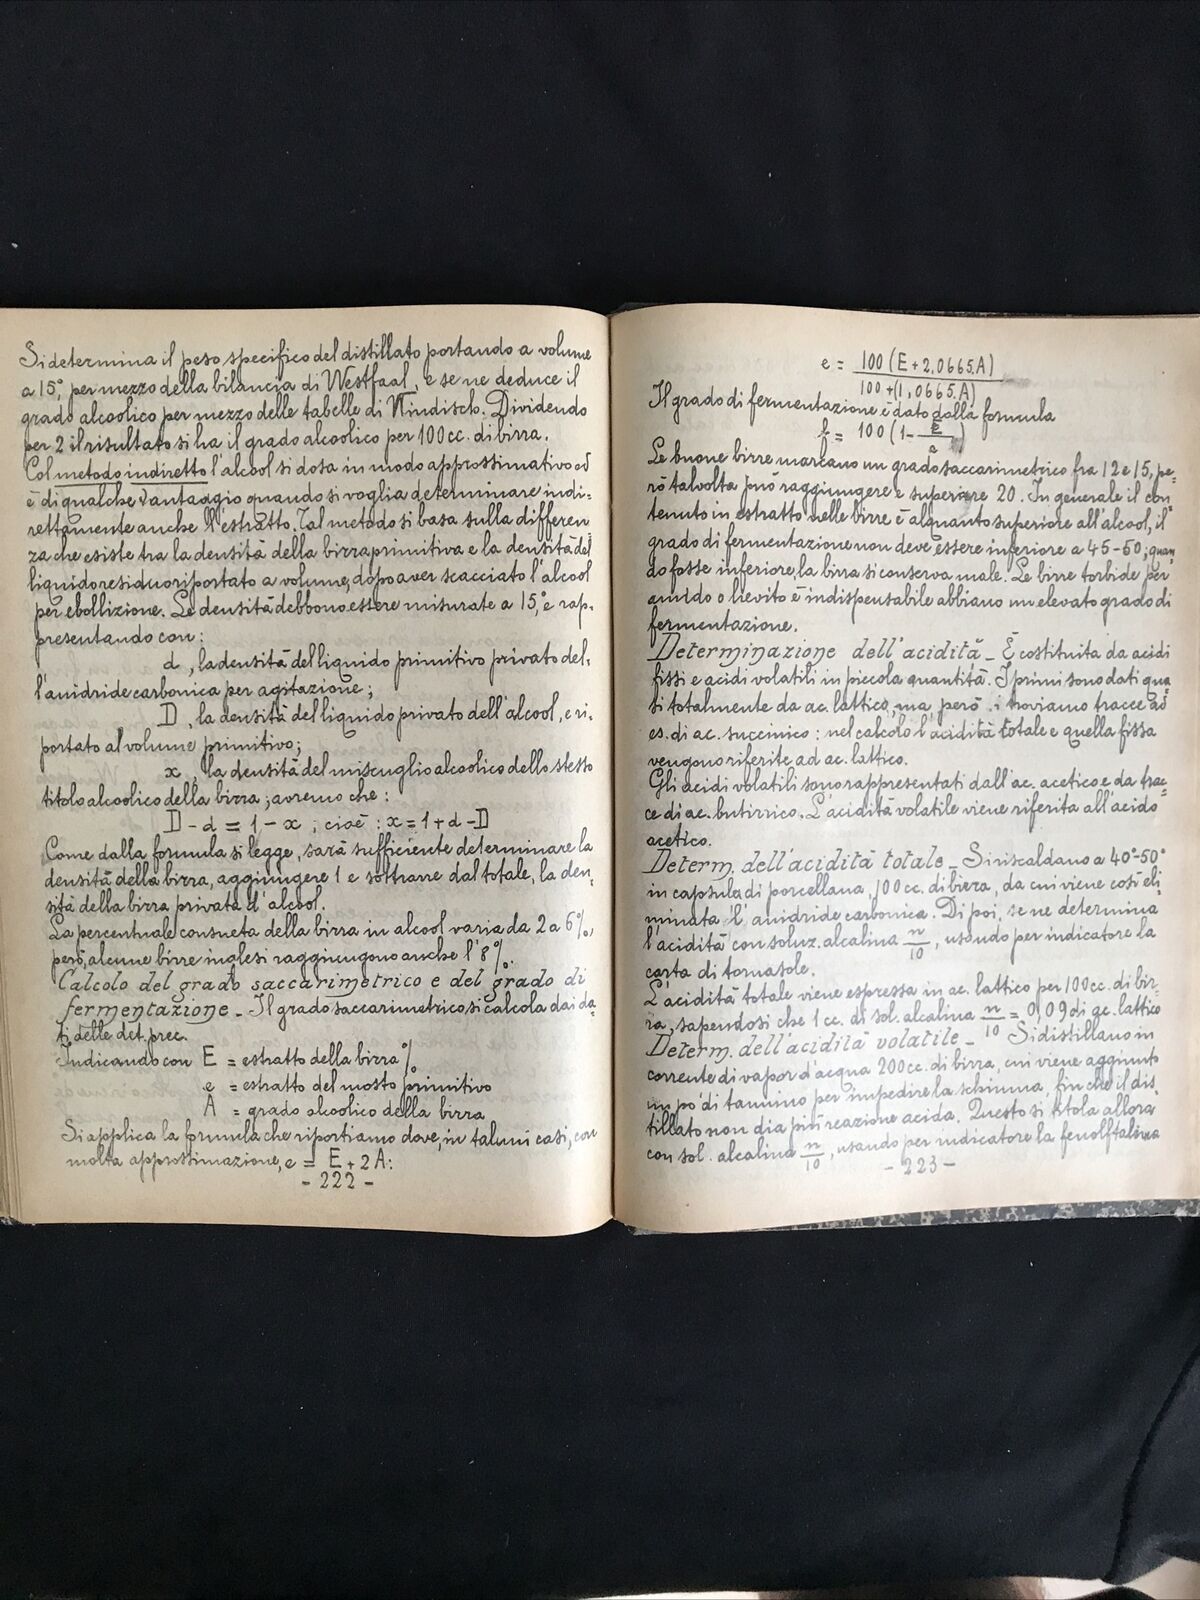 Si determina il peso specifico del distillato portando a volume
a 15°, per mezzo della bilancia di Westfaal, e se ne deduce il
grado alcoolico per mezzo delle tabelle di Windisch. Dividendo
per 2 il risultato si ha il grado alcoolico per 100 cc. di birra.
Col metodo indiretto l'alcool si dosa in modo approssimativo ed
è di qualche vantaggio quando si voglia determinare indi=
rettamente anche l'estratto. Tal metodo si basa sulla differen
za che esiste tra la densità della birra primitiva e la densità del
liquido residuo riportato a volume, dopo aver scacciato l'alcool
per ebollizione. Le densità debbono essere misurate a 15°, e rap-
presentando con:
d, la densità del liquido primitivo privato del-
l'anidride carbonica per agitazione;
D, la densità del liquido privato dell'alcool, e ri-
portato al volume primitivo;
x, la densità del miscuglio alcoolico dello stesso
titolo alcoolico della birra; avremo che:
D - d = 1 - x; cioè: x = 1 + d - D
Come dalla formula si legge, sarà sufficiente determinare la
densità della birra, aggiungere 1 e sottrarre dal totale, la den-
sità della birra privata d'alcool.
La percentuale consueta della birra in alcool varia da 2 a 6%,
però, alcune birre inglesi raggiungono anche l'8%.
Calcolo del grado saccarimetrico e del grado di
fermentazione - Il grado saccarimetrico si calcola dai da
ti delle det. prec.
Indicando con E = estratto della birra %
e = estratto del mosto primitivo
A = grado alcoolico della birra
Si applica la formula che riportiamo dove, in taluni casi, con
molta approssimazione, e = E + 2A:
- 222 -
e = 100 (E + 2,0665.A) / 100 + (1,0665.A)
Il grado di fermentazione è dato dalla formula
= 100 (1 -
Le buone birre marcano un grado saccarimetrico fra 12 e 15, pe-
rò talvolta può raggiungere e superare 20. In generale il con
tenuto in estratto nelle birre è alquanto superiore all'alcool, il
grado di fermentazione non deve essere inferiore a 45-50; quan
do fosse inferiore, la birra si conserva male. Le birre torbide per
amido o lievito è indispensabile abbiano un elevato grado di
fermentazione.
Determinazione dell'acidità - È costituita da acidi
fissi e acidi volatili in piccola quantità. I primi sono dati qua
si totalmente da ac. lattico, ma, però i troviamo tracce ad
es. di ac. succinico: nel calcolo l'acidità totale e quella fissa
vengono riferite ad ac. lattico.
Gli acidi volatili sono rappresentati dall'ac. acetico e da trac=
ce di ac. butirrico. L'acidità volatile viene riferita all'acido
acetico.
Determ. dell'acidità totale - Si riscaldano a 40°-50°
in capsula di porcellana, 100 cc. di birra, da cui viene così eli
minata l'anidride carbonica. Di poi, se ne determina
l'acidità con soluz. alcalina n/10, usando per indicatore la
carta di tornasole.
L'acidità totale viene espressa in ac. lattico per 100 cc. di bir-
ra, sapendosi che 1 cc. di sol. alcalina n/10 = 0,09 di ac. lattico
Determ. dell'acidità volatile - Si distillano in
corrente di vapor d'acqua 200 cc. di birra, cui viene aggiunto
un po' di tannino per impedire la schiuma, fin che il dis
tillato non dia più reazione acida. Questo si titola allora
con sol. alcalina n/10, usando per indicatore la fenolftalina
- 223 -